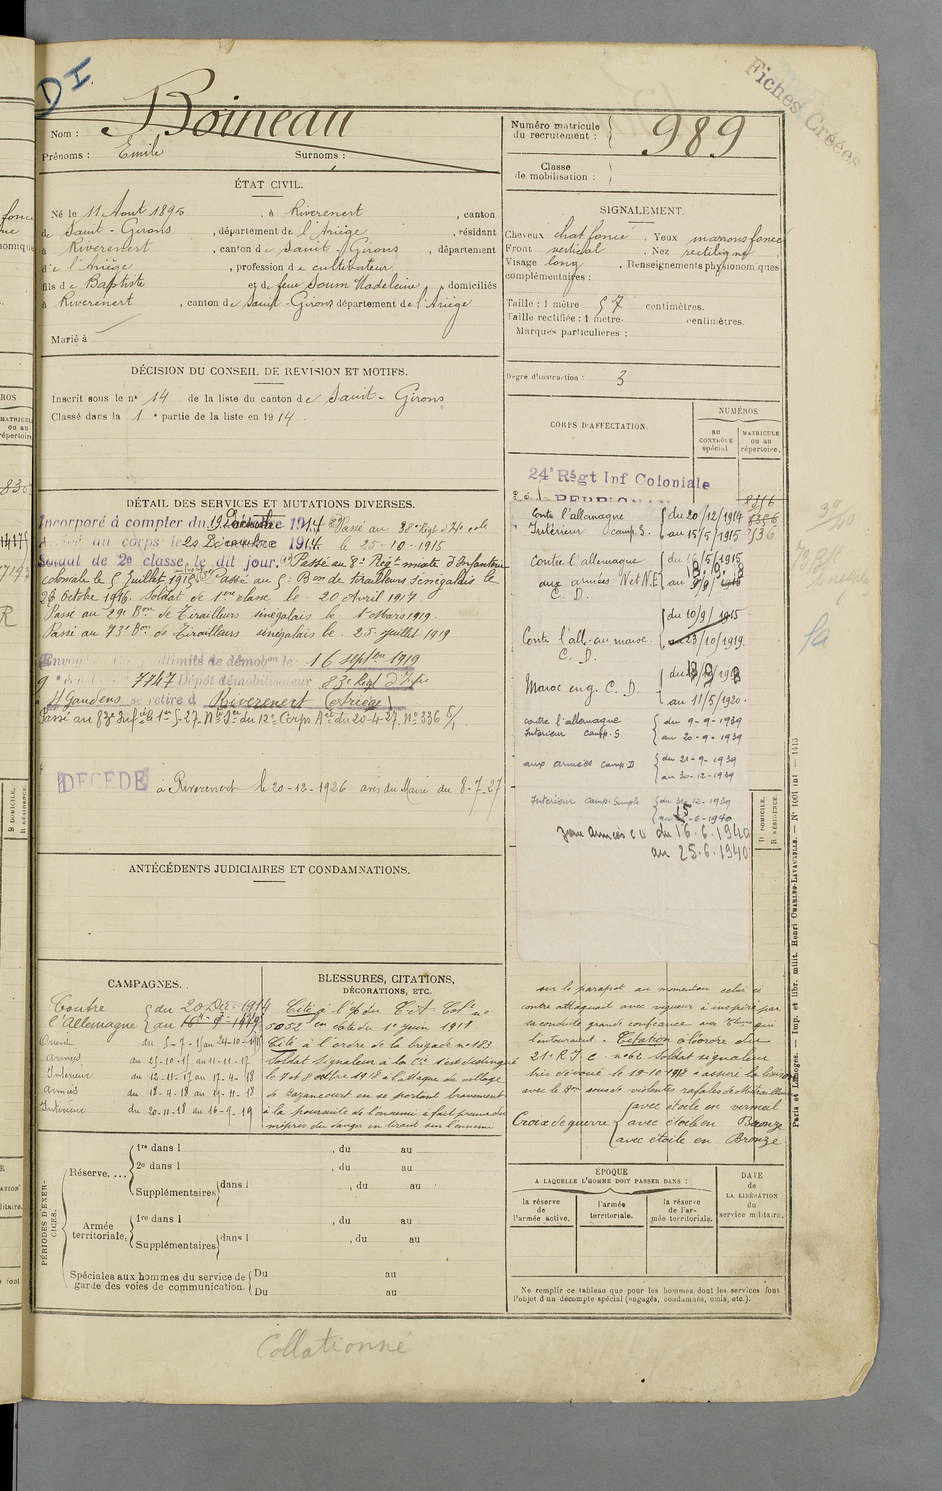 DI
Fiches Créées
Nom : Boineau
Prénoms : Emile Surnoms :
Numéro matricule du recrutement : 989
Classe de mobilisation :
ÉTAT CIVIL.
Né le 11 Aout 1895, à Riverenert, canton
de Saint-Girons, département de l'Ariège, résidant
à Riverenert, canton de Saint-Girons, département
de l'Ariège, profession de cultivateur
fils de Baptiste et de feue Soum Madeleine, domiciliés
à Riverenert, canton de Saint-Girons département de l'Ariège
Marié à
SIGNALEMENT.
Cheveux chat foncé. Yeux marrons foncé
Front vertical. Nez rectiligne
Visage long, Renseignements physionomiques
complémentaires :
Taille : 1 mètre 57 centimètres.
Taille rectifiée : 1 mètre centimètres.
Marques particulières :
Degré d'instruction : 3
DÉCISION DU CONSEIL DE REVISION ET MOTIFS.
Inscrit sous le n° 14 de la liste du canton de Saint-Girons
Classé dans la 1e partie de la liste en 1914.
CORPS D'AFFECTATION.
NUMÉROS
au CONTRÔLE spécial
MATRICULE ou au répertoire.
24e Régt Inf Coloniale
PERPIGNAN
DÉTAIL DES SERVICES ET MUTATIONS DIVERSES.
Incorporé à compter du 19 Décembre 1914 Passé au 38e Regt d'I. cole
Arrivé au corps le 20 Décembre 1914. le 25-10-1915
Soldat de 2e classe le dit jour. Passé au 8e Régt mixte d'Infanterie
coloniale le 5 juillet 1915 Passé au 5e Bon de tirailleurs sénégalais le
26 Octobre 1916. Soldat de 1ere classe le 20 Avril 1917.
Passé au 29e Bon de Tirailleurs sénégalais le 1er Mars 1919.
Passé au 73e Bon de Tirailleurs sénégalais le 25 juillet 1919
Envoyé en congé illimité de démobon le 16 septbre 1919
7747 Dépôt démobilisateur 83e Regt d'Infie
St Gaudens se retire à Riverenert (Ariège)
DECEDE à Riverenert le 20-12-1926 avis du Maire du 8-7-27
Contre l'allemagne du 20/12/1914
Intérieur camp. S. au 15/5/1915
Contre l'allemagne du 16/5/1915
aux armées N et N.E
C. D.
du 10/9/1915
Contre l'all. au maroc. au 23/10/1919.
C. D.
Maroc eng. C. D.
au 11/5/1920.
contre l'allemagne du 9-9-1939
Intérieur camp-S au 20-9-1939
aux armées camp-D du 21-9-1939
au 30-12-1939
Interieur camp-Simple du 31-12-1939
au 15-6-1940
zone armées CD du 16.6.1940
au 25.6.1940
D DOMICILE.
R RÉSIDENCE
ANTÉCÉDENTS JUDICIAIRES ET CONDAMNATIONS.
CAMPAGNES.
Contre du 20 Dec 1914
l'Allemagne au
Orient du 5-7-15 au 24-10-15
Armées du 25-10-15 au 11-11-17
Interieur du 12-11-17 au 17-4-18
Armées du 18-4-18 au 19-11-18
Intérieur du 20-11-18 au 16-9-19
BLESSURES, CITATIONS,
DÉCORATIONS, ETC.
Cité à l'O/ du Lt-Col n°
5052 en date du 1er juin 1918
Cité à l'ordre de la brigade n° 183
Soldat signaleur à la Cie s'est distingué
le 7 et 8 octbre 1918 à l'attaque du village
de Bazancourt en se portant bravement
à la poursuite de l'ennemi a fait preuve du
mépris du danger en tirant sur l'ennemi
sur le parapet au moment ou celui ci
contre attaquait avec vigueur a inspiré par
sa conduite grande confiance aux Tirrs qui
l'entouraient. Citation à l'ordre du
21e R.I.C n° 62 Soldat signaleur
très dévoué le 19-10-1918 a assuré la liaison
avec le Bon sous de violentes rafales de Mitrailleuses
Croix de guerre avec étoile en vermeil
avec étoile en Bronze
avec étoile en Bronze
PÉRIODES D'EXERCICES.
Réserve....
1re dans l , du au
2e dans l , du au
Supplémentaires dans l , du au
Armée territoriale.
1re dans l , du au
Supplémentaires dans l , du au
Spéciales aux hommes du service de garde des voies de communication.
Du au
Du au
ÉPOQUE
A LAQUELLE L'HOMME DOIT PASSER DANS :
la réserve de l'armée active.
l'armée territoriale.
la réserve de l'armée territoriale.
DATE de LA LIBÉRATION du service militaire.
Ne remplir ce tableau que pour les hommes dont les services font
l'objet d'un décompte spécial (engagés, condamnés, omis, etc.).
Paris et Limoges. — Imp. et libr. milit. Henri CHARLES-LAVAUZELLE. — N° 1001 int — 1415
Collationné